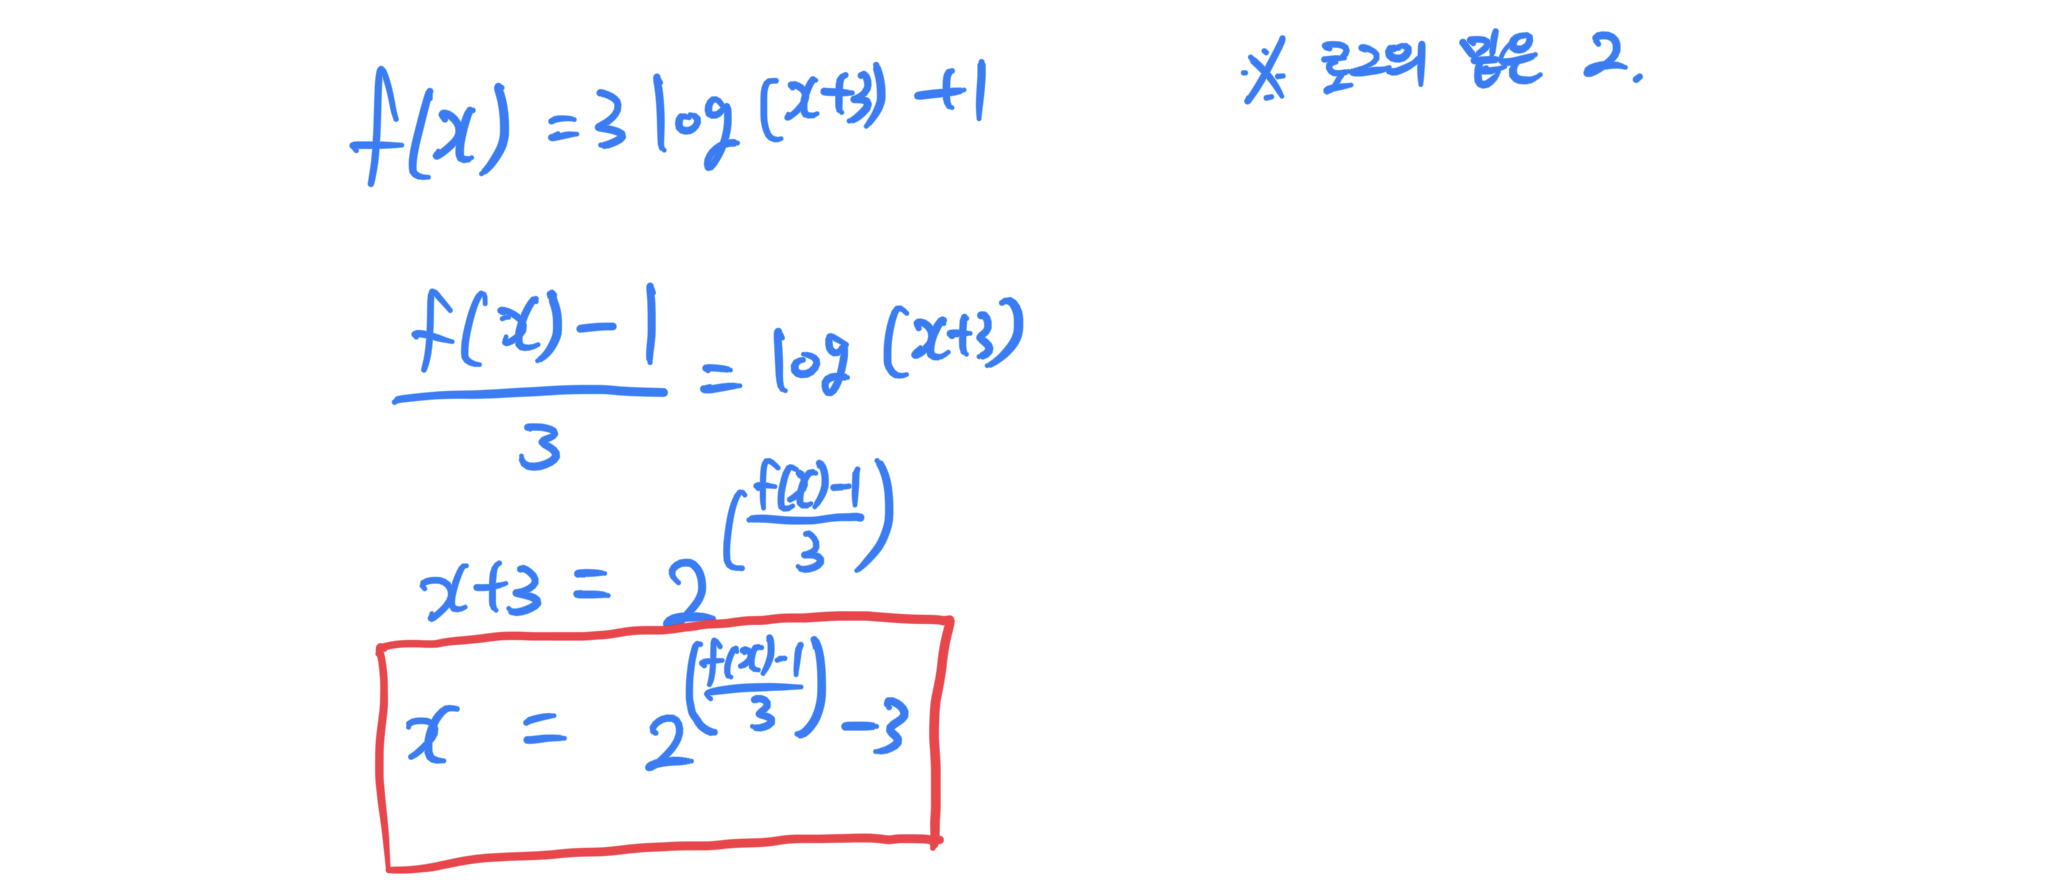 f(x) = 3 log (x+3) + 1
※ 로그의 밑은 2.
\frac{f(x) - 1}{3} = log (x+3)
x+3 = 2^{(\frac{f(x)-1}{3})}
x = 2^{(\frac{f(x)-1}{3})} - 3